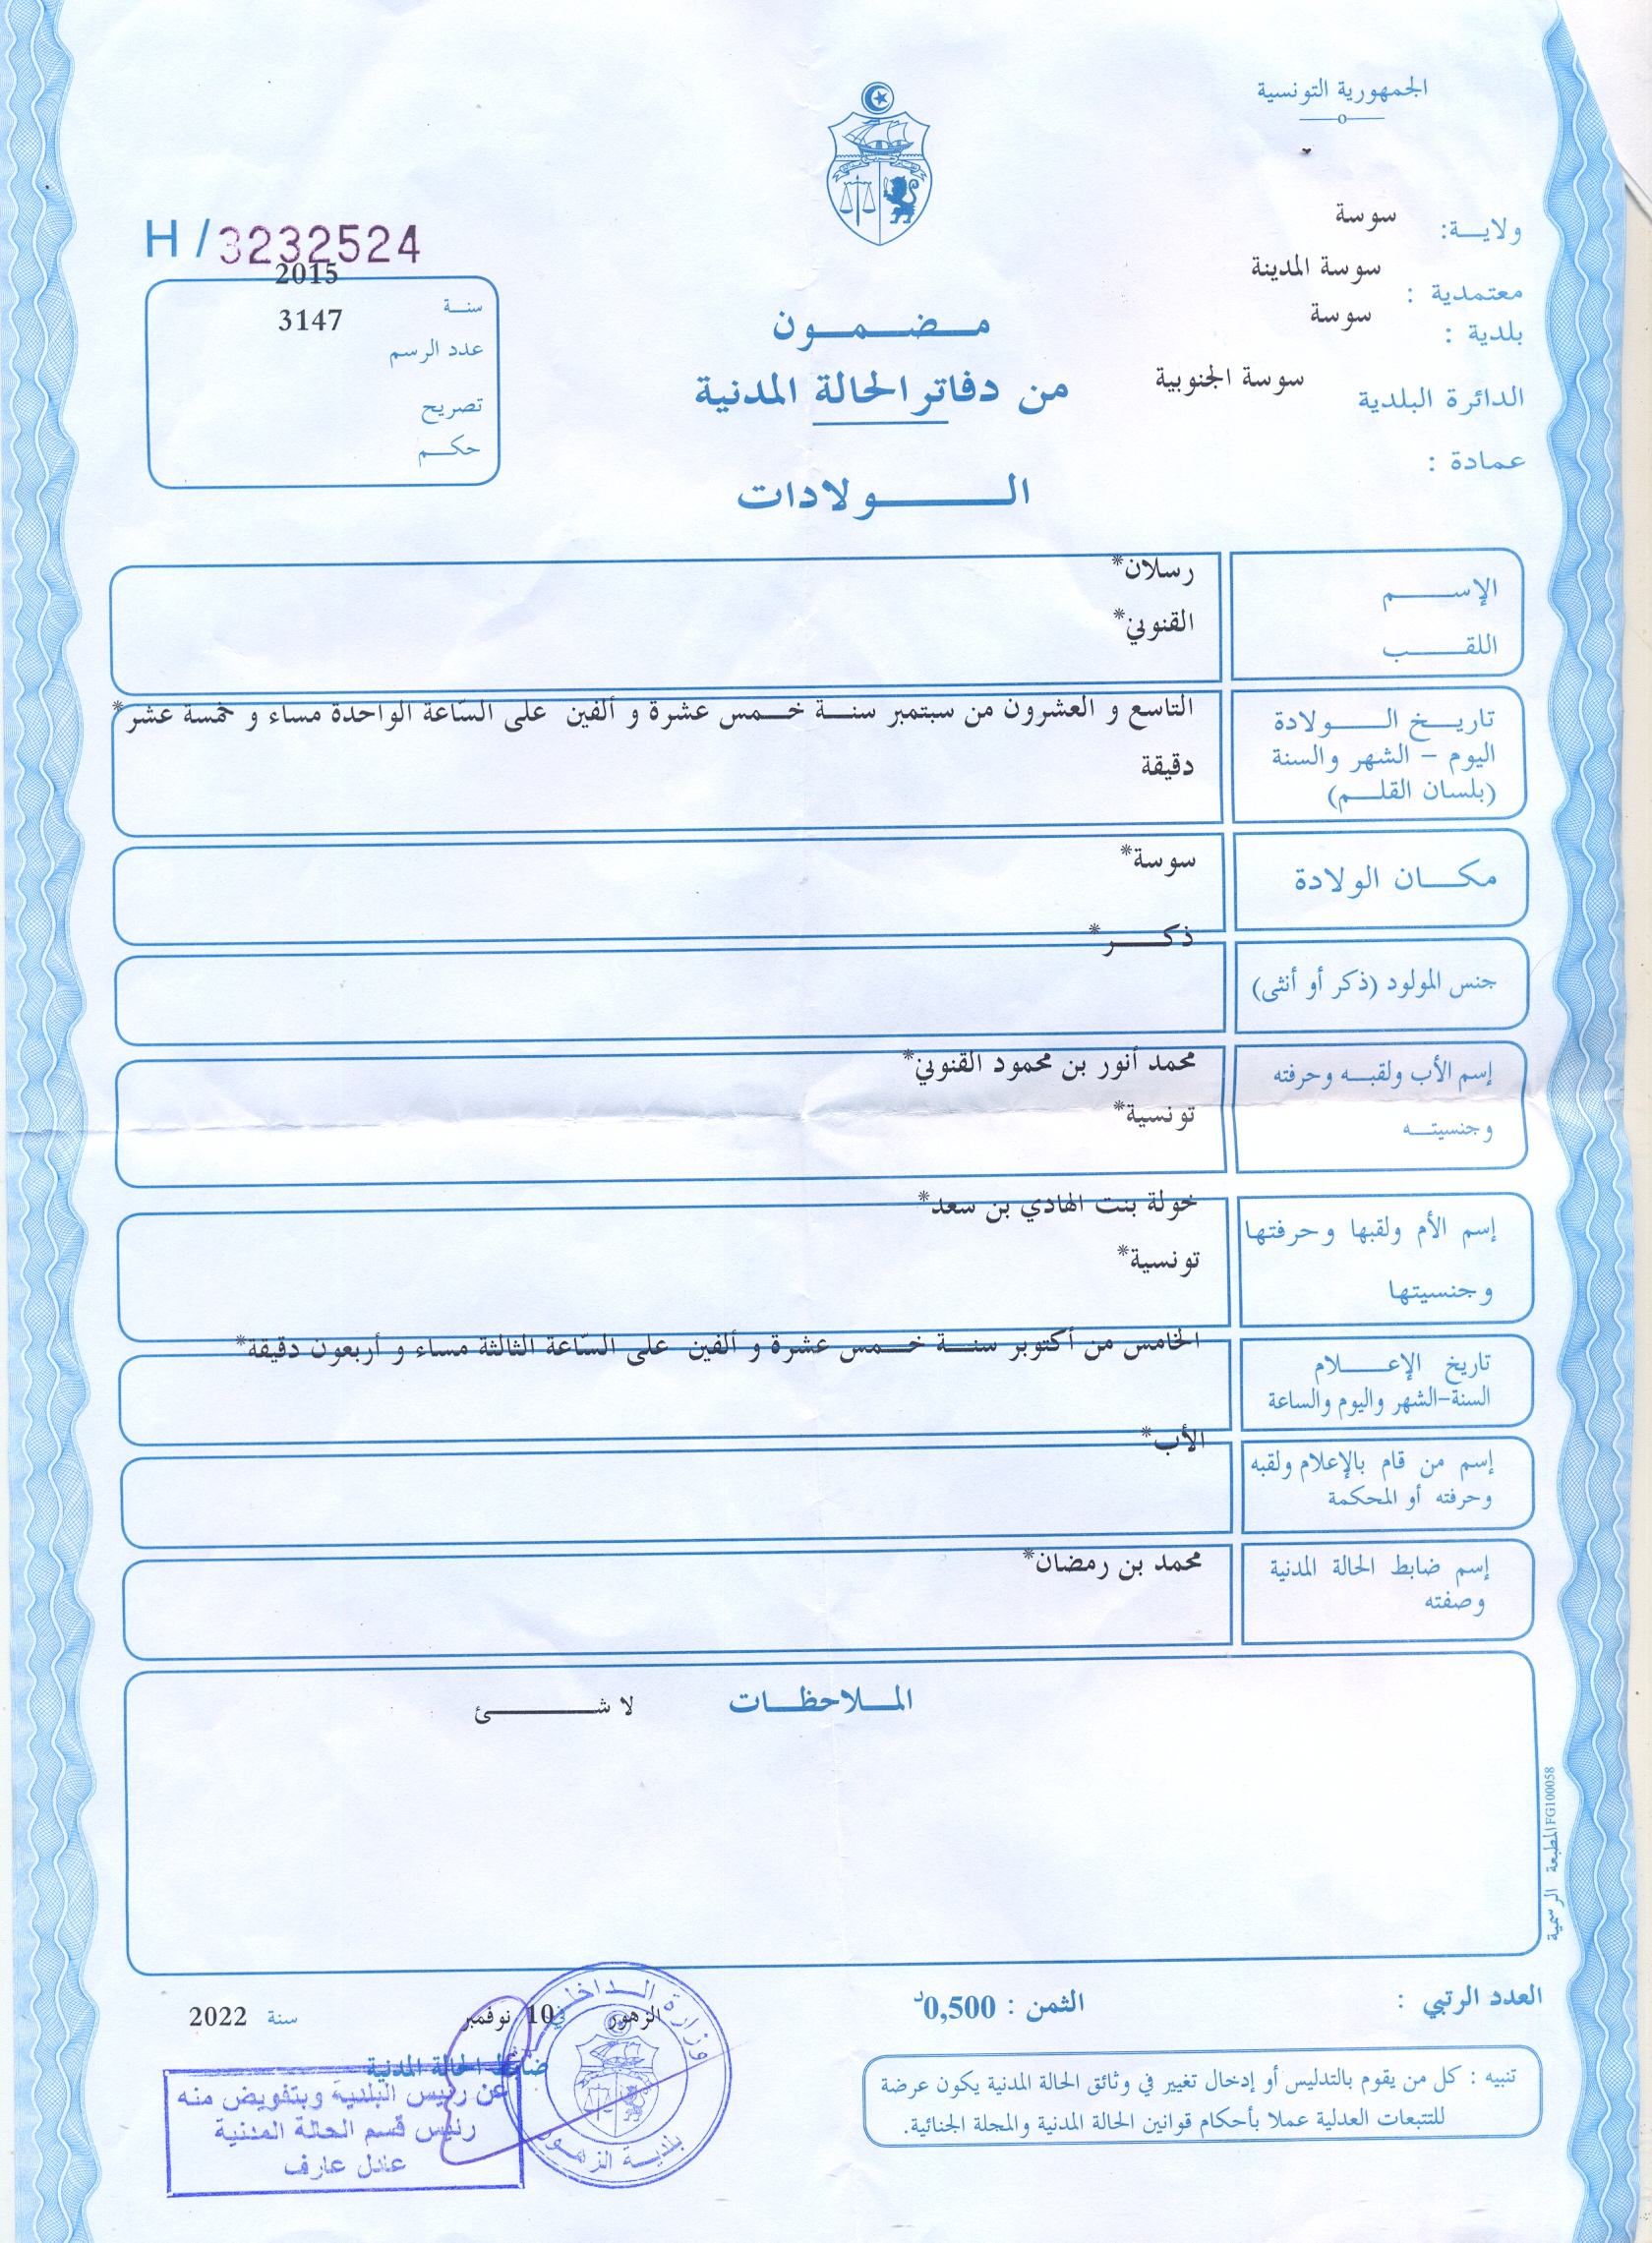 الجمهورية التونسية
ولايــة: سوسة
معتمدية : سوسة المدينة
بلدية : سوسة
الدائرة البلدية سوسة الجنوبية
عمادة :
H / 3232524
سنــة 2015
عدد الرسم 3147
تصريح
حكــم
مـضـمـون
من دفاتر الحالة المدنية
الـولادات
الإســـم رسلان*
اللقـــب القنوني*
تاريــخ الـــولادة التاسع و العشرون من سبتمبر سنــة خــمس عشرة و ألفين على السّاعة الواحدة مساء و خمسة عشر*
اليوم – الشهر والسنة دقيقة
(بلسان القلــم)
مكـــان الولادة سوسة*
ذكـــر*
جنس المولود (ذكر أو أنثى)
إسم الأب ولقبــه وحرفته محمد أنور بن محمود القنوني*
وجنسيتــه تونسية*
إسم الأم ولقبها وحرفتها خولة بنت الهادي بن سعد*
وجنسيتها تونسية*
تاريخ الإعـــلام الخامس من أكتوبر سنــة خــمس عشرة و ألفين على السّاعة الثالثة مساء و أربعون دقيقة*
السنة-الشهر واليوم والساعة
الأب*
إسم من قام بالإعلام ولقبه
وحرفته أو المحكمة
إسم ضابط الحالة المدنية محمد بن رمضان*
وصفته
المــلاحظــات لا شـــئ
المطبعة الرسمية FG100058
العدد الرتبي :
الثمن : 0,500د
الزهور في 10 نوفمبر سنة 2022
ضابط الحالة المدنية
عن رئيس البلدية وبتفويض منه
رئيس قسم الحالة المدنية
عادل عارف
وزارة الــداخلية
بلديــة الزهور
تنبيه : كل من يقوم بالتدليس أو إدخال تغيير في وثائق الحالة المدنية يكون عرضة
للتتبعات العدلية عملا بأحكام قوانين الحالة المدنية والمجلة الجنائية.